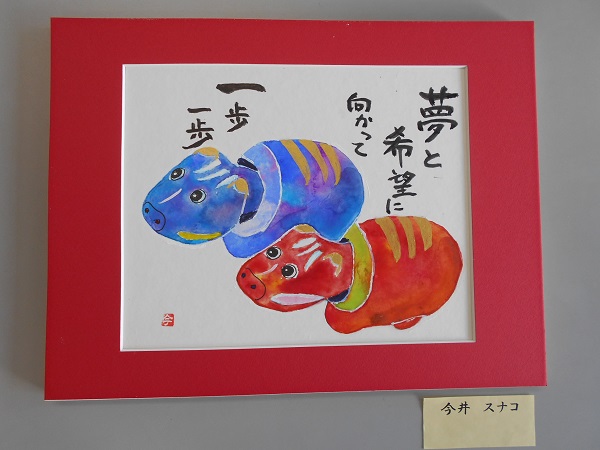 夢と
希望に
向かって
一歩
一歩
今井 スナコ